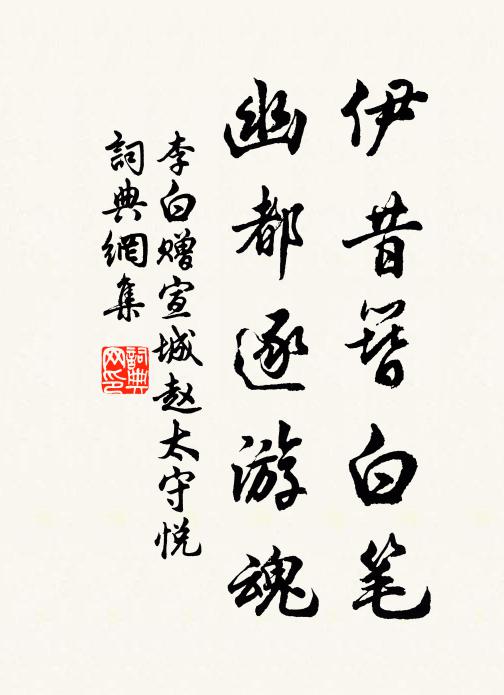 伊昔簪白笔
幽都逐游魂
李白赠宣城赵太守悦
詞典網集
詞典网印